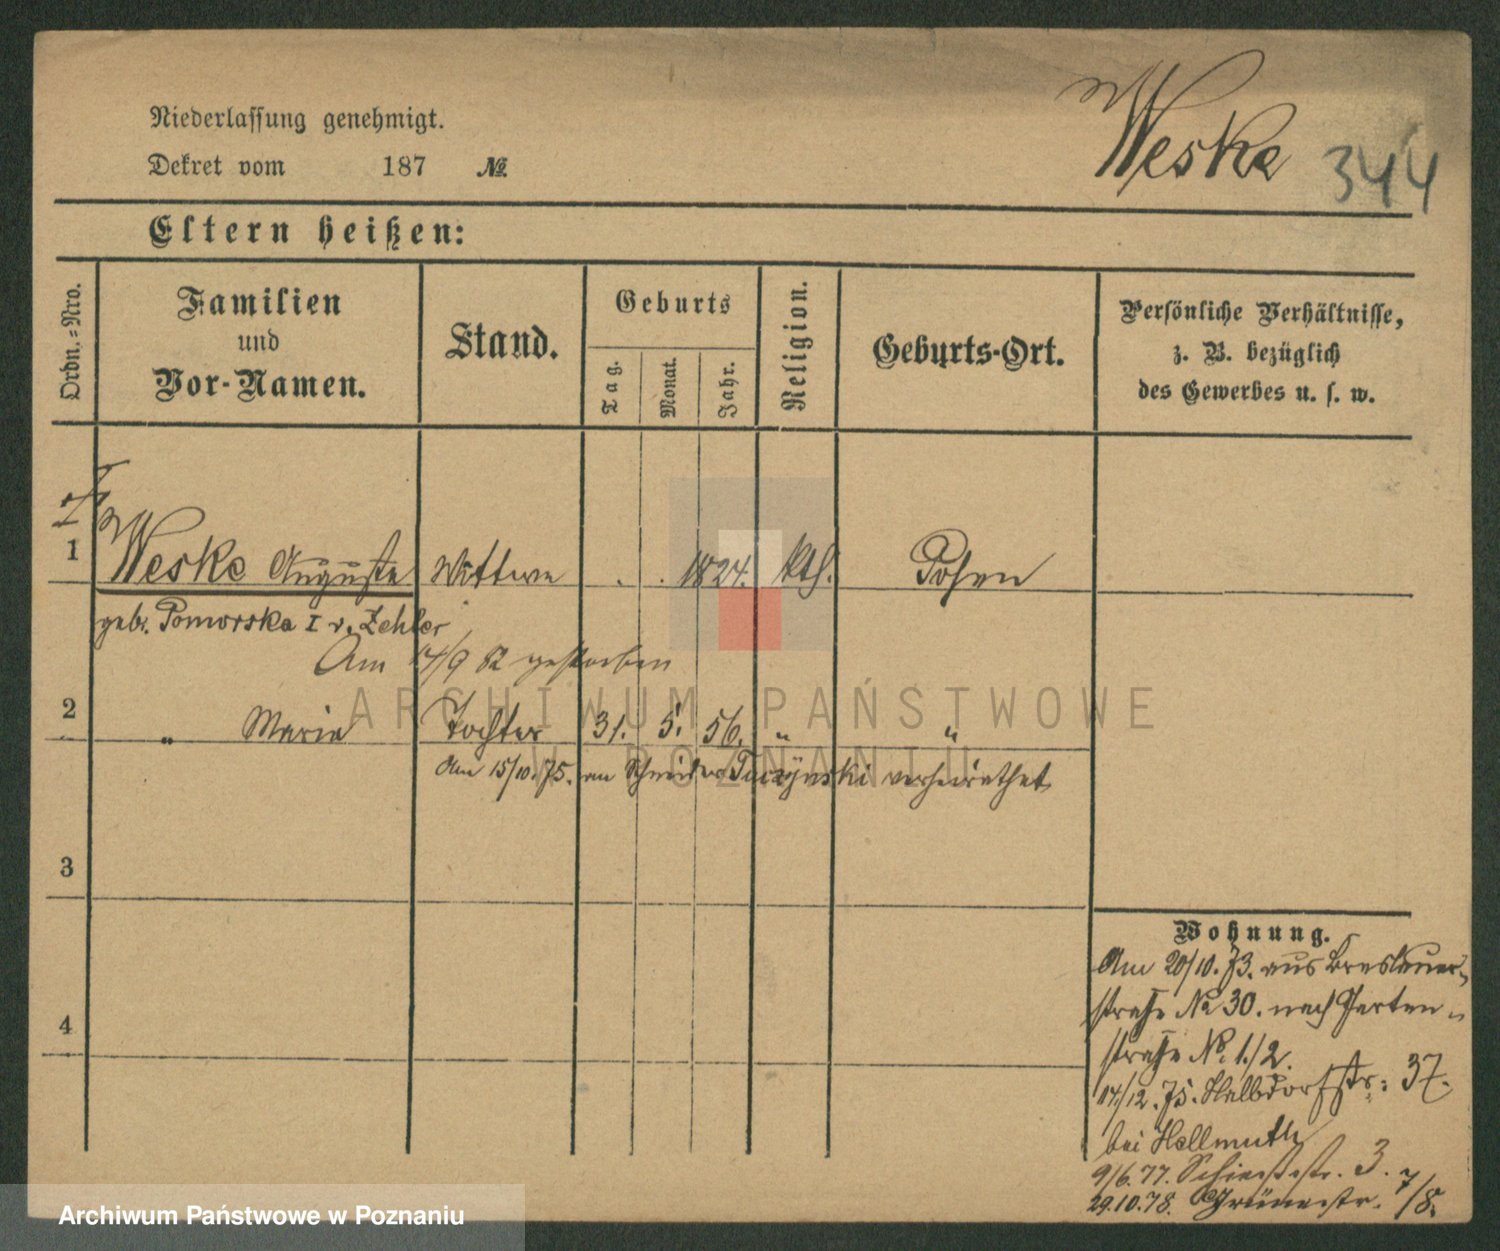 Niederlassung genehmigt.
Weske 344
Dekret vom 187 №
Eltern heißen:
Ordn.-Nro.
Familien
und
Vor-Namen.
Stand.
Geburts
Tag.
Monat.
Jahr.
Religion.
Geburts-Ort.
Persönliche Verhältnisse,
z. B. bezüglich
des Gewerbes u. s. w.
1 Weske Auguste Wittwe . . 1824. kth. Posen
geb. Pomorska I v. Zehler
Am 14/9 82 gestorben
2 " Maria Tochter 31. 5. 56. " "
Am 15/10. 75. an Schneider Tuczynski verheirathet
3
4
Wohnung.
Am 20/10. 73. aus Breslauer-
straße № 30. nach Garten-
straße No. 1./2.
14/12. 75. Halbdorfstr: 37.
bei Hellmuth
9/6. 77. Schiesstr. 3.
29.10.78. Grünestr. 7/8.
ARCHIWUM PAŃSTWOWE
W POZNANIU
Archiwum Państwowe w Poznaniu